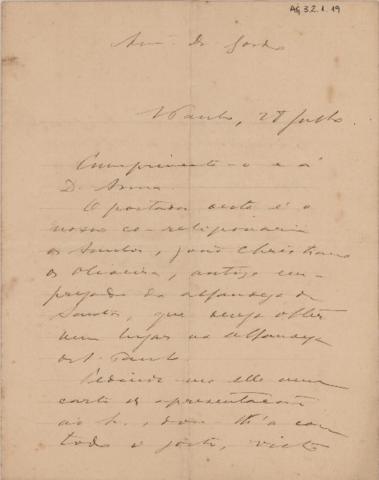 AG 3.2.1.19
Am.º Dr. Gordo
S. Paulo, 28 Julho
Cumprimento-o e á
D. Anna.
O portador desta é o
nosso co-religionario
de Santos, João Christiano
de Oliveira, antigo em-
pregado da alfandega de
Santos, que deseja obter
um lugar na alfandega
de S. Paulo.
Pedindo-me elle uma
carta de apresentação
ao sr., dou-lh'a com
todo o gosto, visto